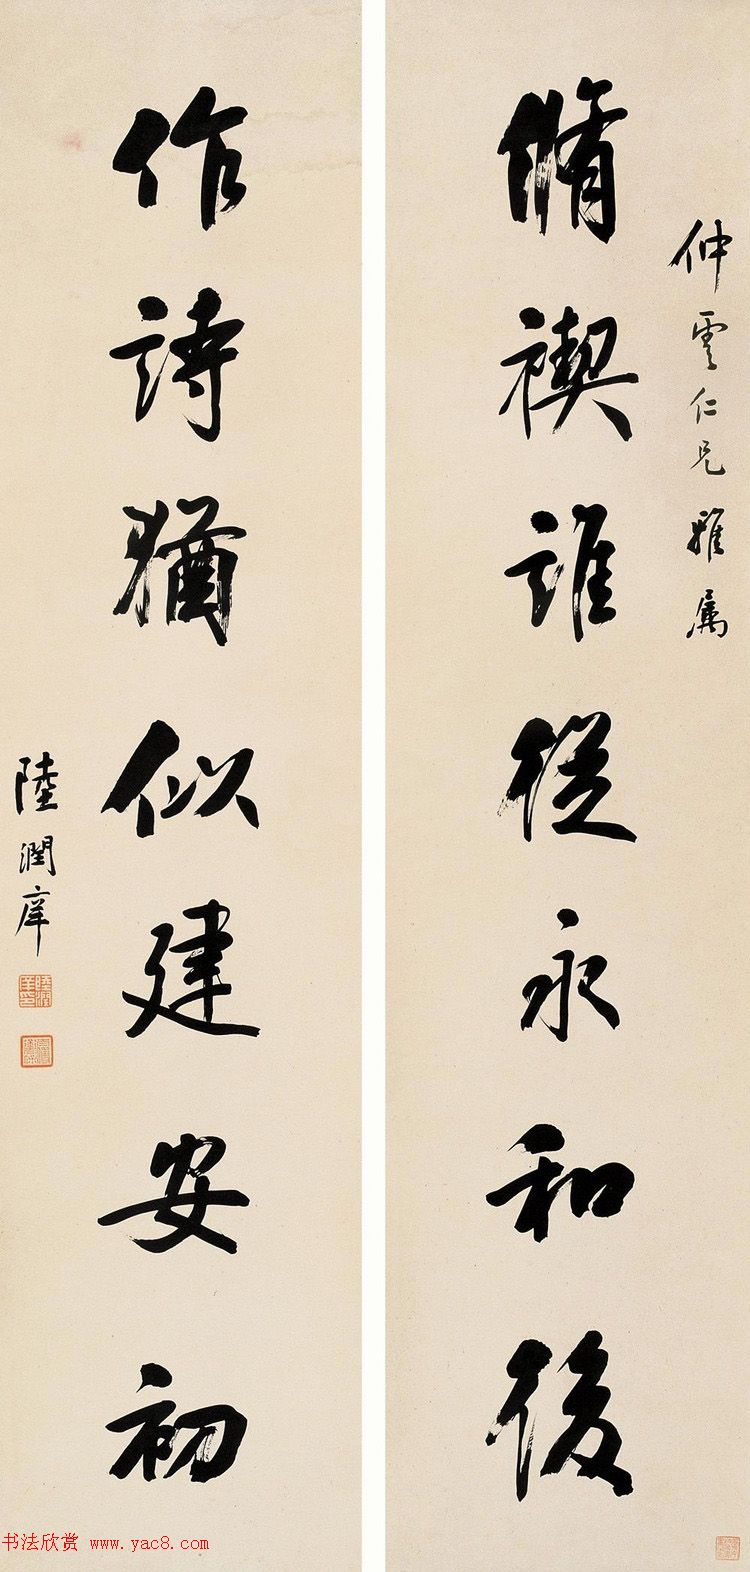 仲雲仁兄雅属
脩禊誰從永和後
作詩猶似建安初
陸潤庠
陸潤庠印
书法欣赏 www.yac8.com